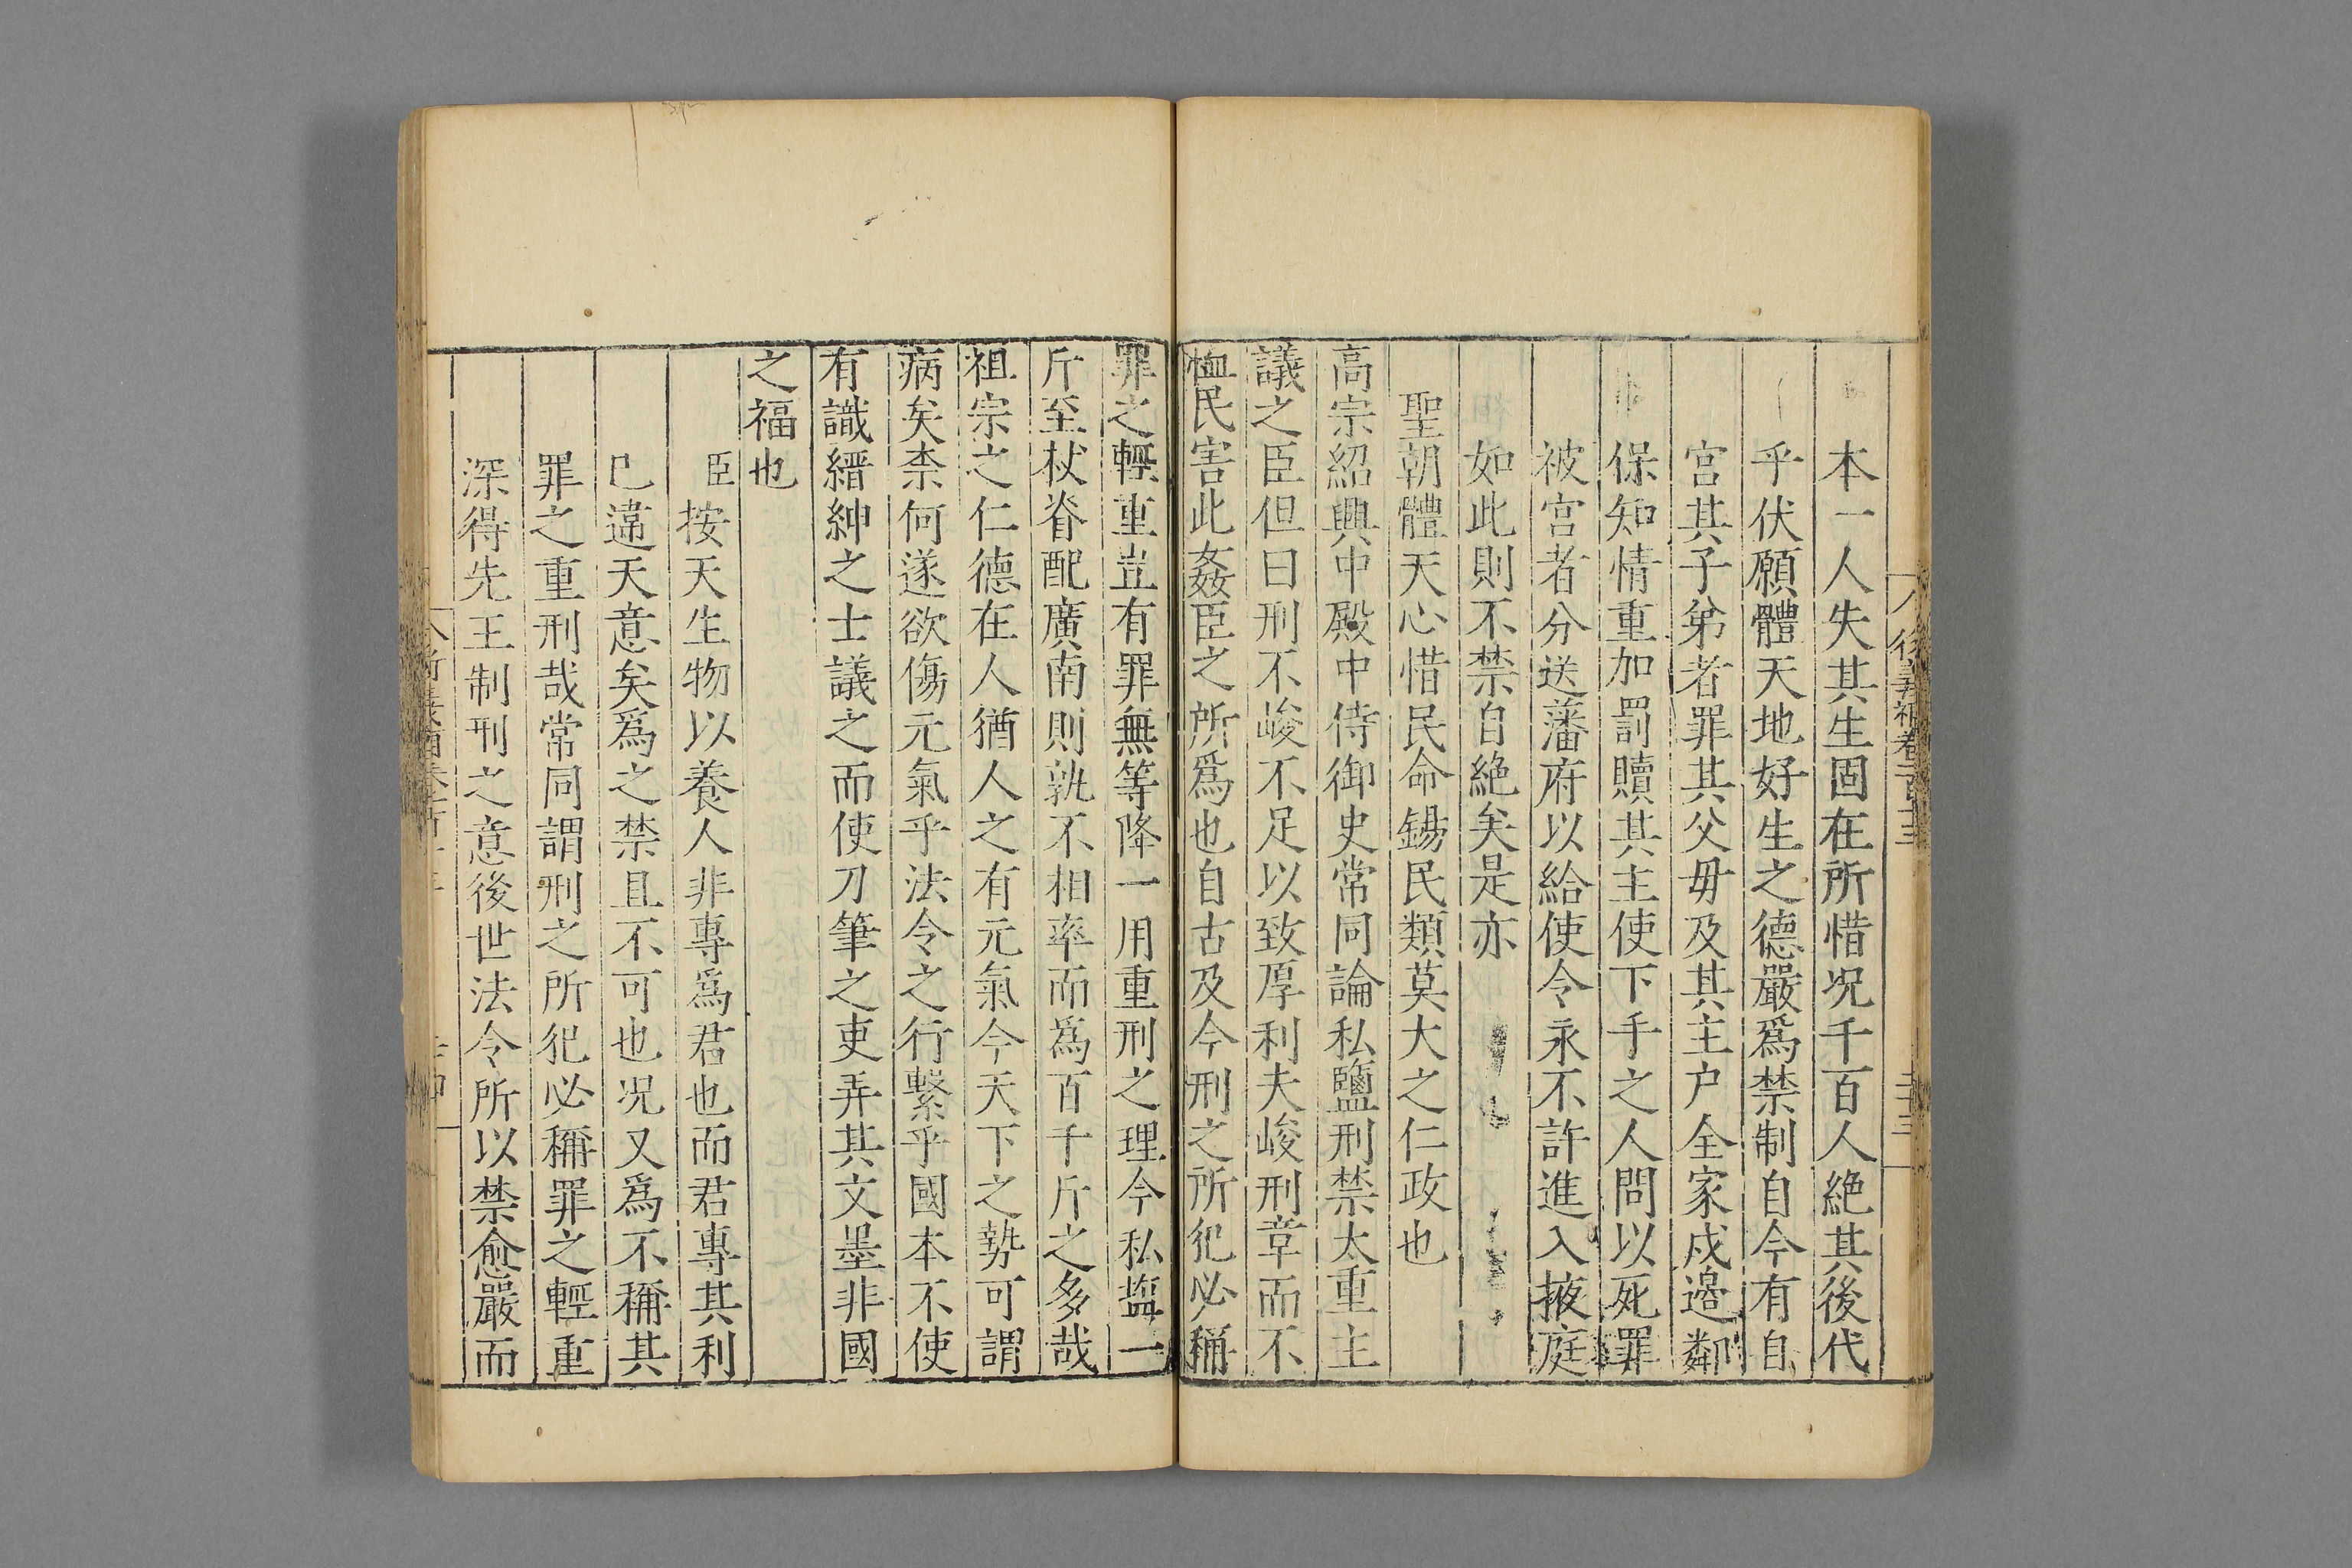 本一人失其生固在所惜况千百人絶其後代
乎伏願體天地好生之德嚴爲禁制自今有自
宫其子弟者罪其父毋及其主户全家戍邉鄰
保知情重加罰贖其主使下手之人問以死罪
被宫者分送藩府以給使令永不許進入掖庭
如此則不禁自絶矣是亦
聖朝體天心惜民命錫民類莫大之仁政也
高宗紹興中殿中侍御史常同論私鹽刑禁太重主
議之臣但曰刑不峻不足以致厚利夫峻刑章而不
恤民害此姦臣之所爲也自古及今刑之所犯必稱
罪之輕重豈有罪無等降一用重刑之理今私塩一
斤至杖脊配廣南則孰不相率而爲百千斤之多哉
祖宗之仁德在人猶人之有元氣今天下之勢可謂
病矣柰何遂欲傷元氣乎法令之行繫乎國本不使
有識縉紳之士議之而使刀筆之吏弄其文墨非國
之福也
臣按天生物以養人非專爲君也而君專其利
已違天意矣爲之禁且不可也况又爲不稱其
罪之重刑哉常同謂刑之所犯必稱罪之輕重
深得先王制刑之意後世法令所以禁愈嚴而